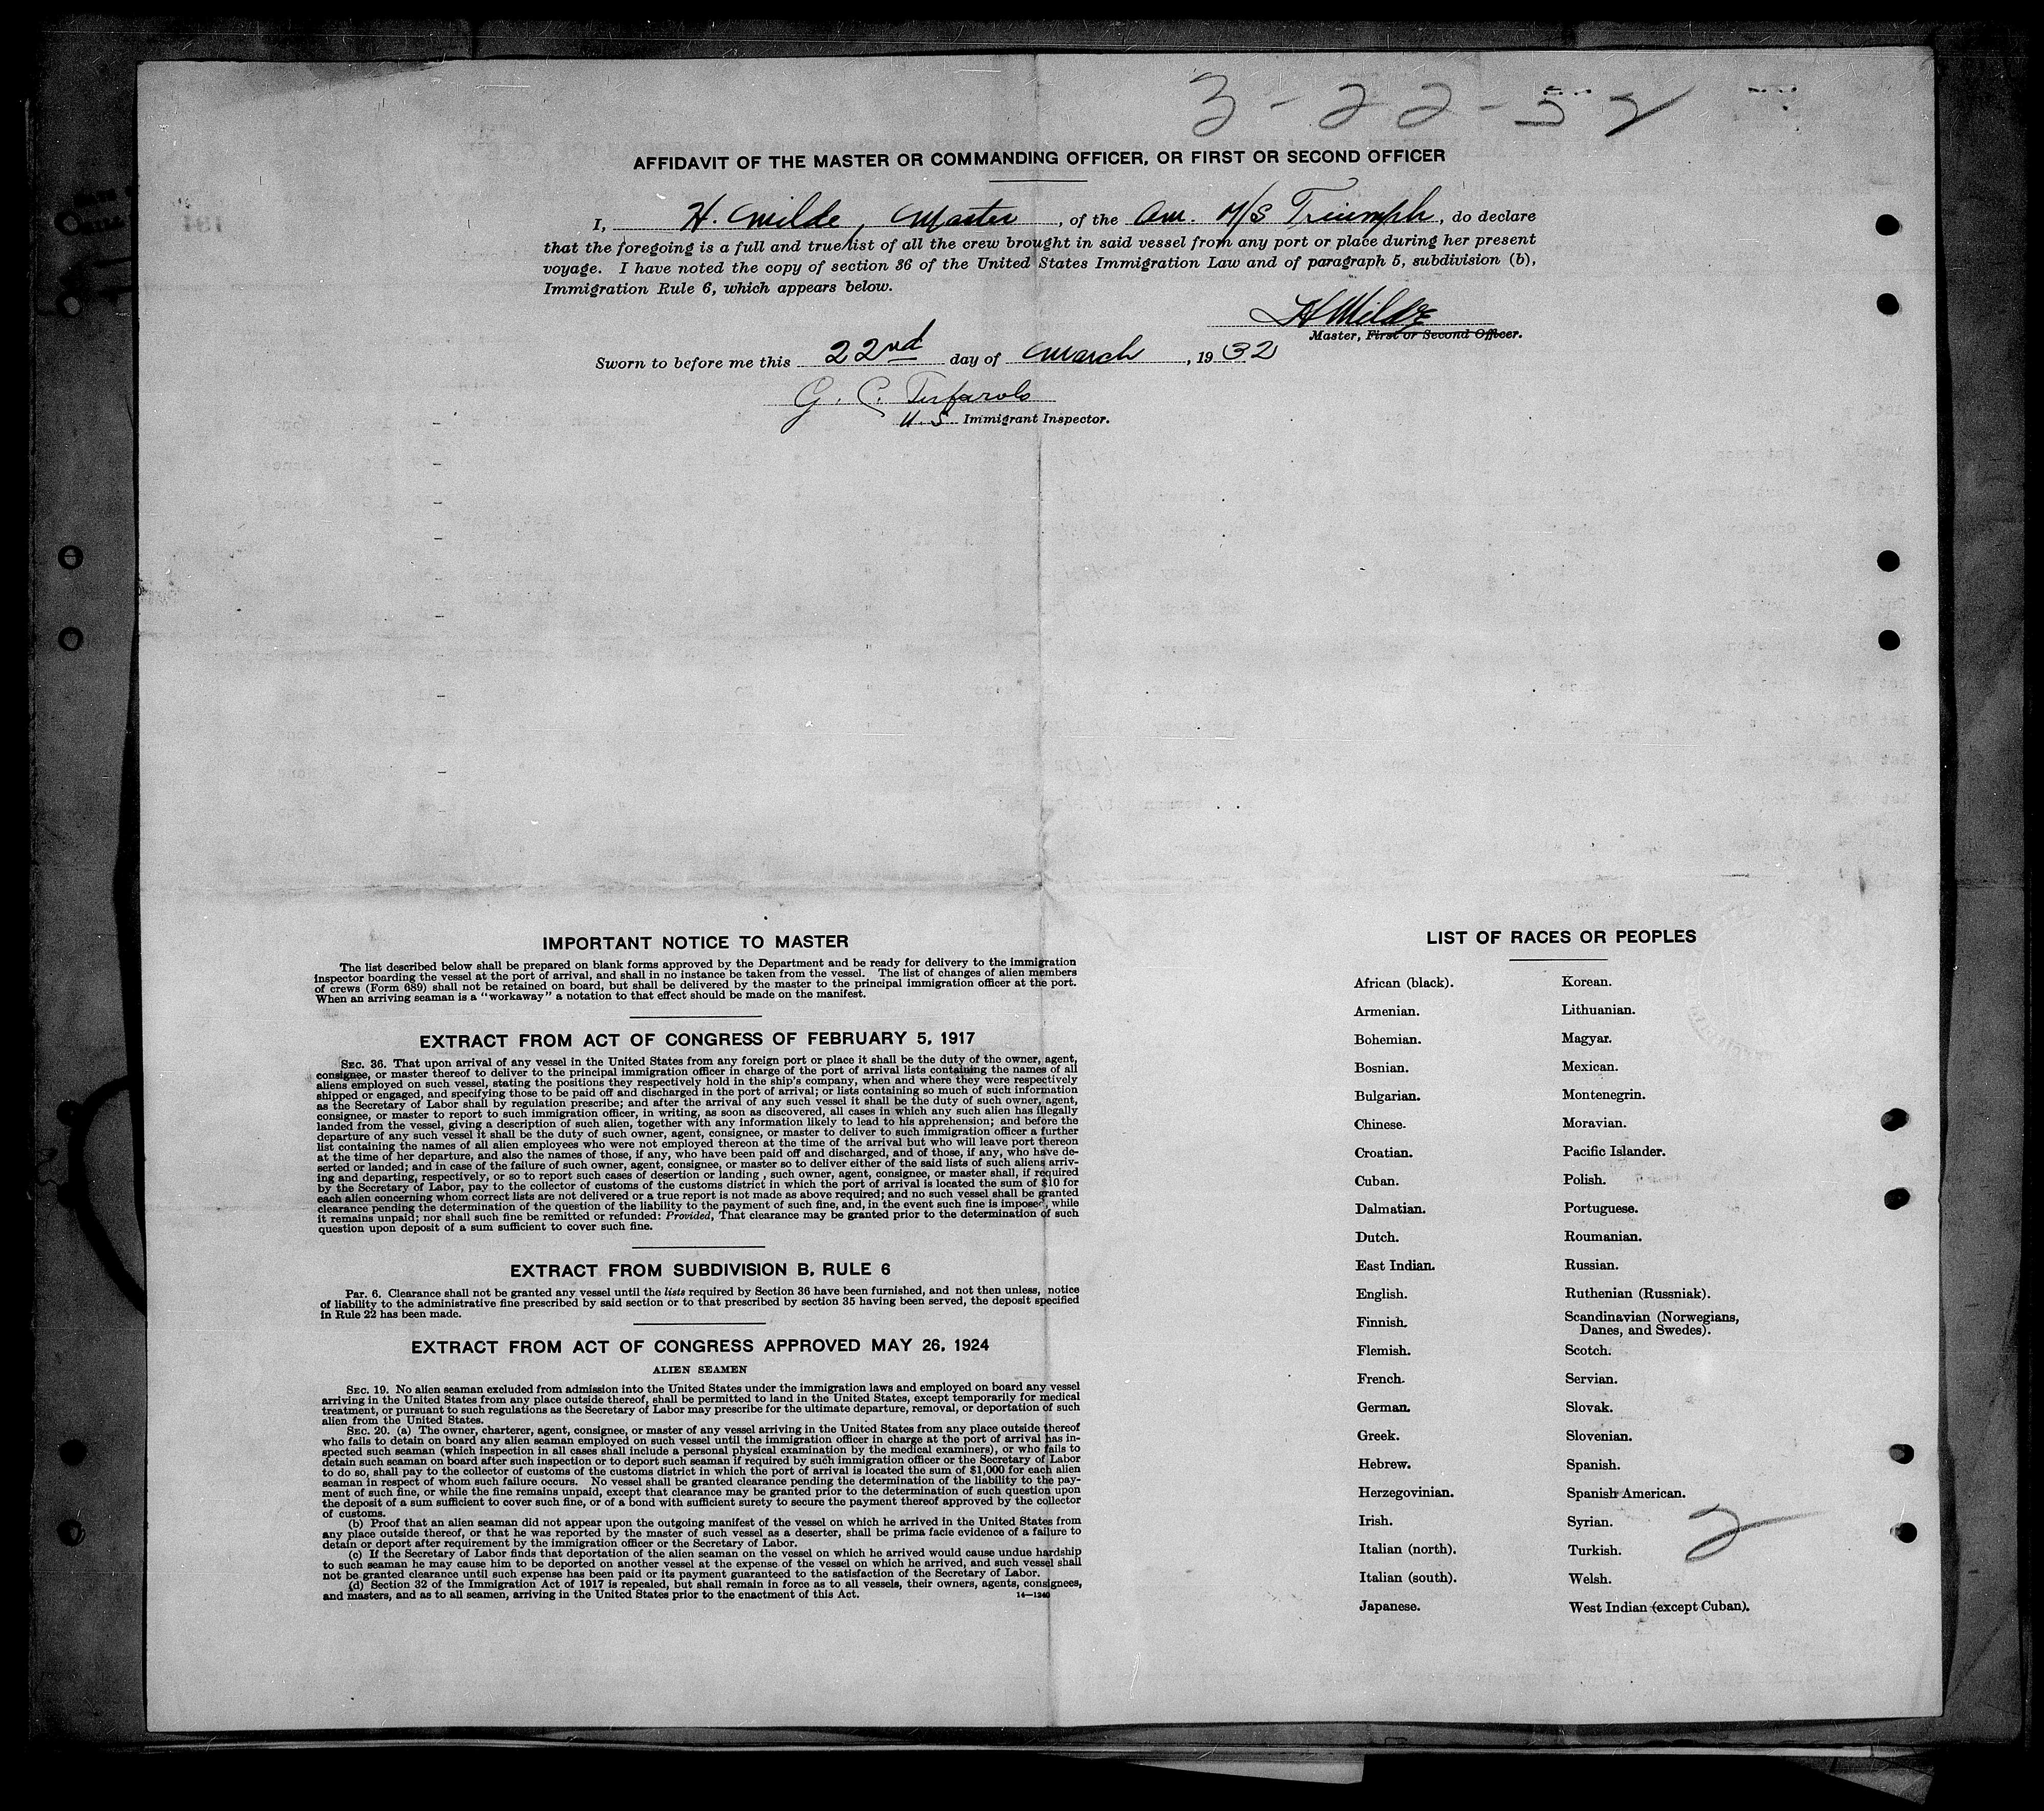 3-22-32
AFFIDAVIT OF THE MASTER OR COMMANDING OFFICER, OR FIRST OR SECOND OFFICER
I, H. Wilde, Master, of the Am. M/S Triumph, do declare
that the foregoing is a full and true list of all the crew brought in said vessel from any port or place during her present
voyage. I have noted the copy of section 36 of the United States Immigration Law and of paragraph 5, subdivision (b),
Immigration Rule 6, which appears below.
H Wilde
Master, First or Second Officer.
Sworn to before me this 22nd day of March, 1932
G. C.
U.S. Immigrant Inspector.
IMPORTANT NOTICE TO MASTER
The list described below shall be prepared on blank forms approved by the Department and be ready for delivery to the immigration
inspector boarding the vessel at the port of arrival, and shall in no instance be taken from the vessel. The list of changes of alien members
of crews (Form 689) shall not be retained on board, but shall be delivered by the master to the principal immigration officer at the port.
When an arriving seaman is a "workaway" a notation to that effect should be made on the manifest.
EXTRACT FROM ACT OF CONGRESS OF FEBRUARY 5, 1917
SEC. 36. That upon arrival of any vessel in the United States from any foreign port or place it shall be the duty of the owner, agent,
consignee, or master thereof to deliver to the principal immigration officer in charge of the port of arrival lists containing the names of all
aliens employed on such vessel, stating the positions they respectively hold in the ship's company, when and where they were respectively
shipped or engaged, and specifying those to be paid off and discharged in the port of arrival; or lists containing so much of such information
as the Secretary of Labor shall by regulation prescribe; and after the arrival of any such vessel it shall be the duty of such owner, agent,
consignee, or master to report to such immigration officer, in writing, as soon as discovered, all cases in which any such alien has illegally
landed from the vessel, giving a description of such alien, together with any information likely to lead to his apprehension; and before the
departure of any such vessel it shall be the duty of such owner, agent, consignee, or master to deliver to such immigration officer a further
list containing the names of all alien employees who were not employed thereon at the time of the arrival but who will leave port thereon
at the time of her departure, and also the names of those, if any, who have been paid off and discharged, and of those, if any, who have de-
serted or landed; and in case of the failure of such owner, agent, consignee, or master so to deliver either of the said lists of such aliens arriv-
ing and departing, respectively, or so to report such cases of desertion or landing , such owner, agent, consignee, or master shall, if required
by the Secretary of Labor, pay to the collector of customs of the customs district in which the port of arrival is located the sum of $10 for
each alien concerning whom correct lists are not delivered or a true report is not made as above required; and no such vessel shall be granted
clearance pending the determination of the question of the liability to the payment of such fine, and, in the event such fine is imposed, while
it remains unpaid; nor shall such fine be remitted or refunded: Provided, That clearance may be granted prior to the determination of such
question upon deposit of a sum sufficient to cover such fine.
EXTRACT FROM SUBDIVISION B, RULE 6
Par. 6. Clearance shall not be granted any vessel until the lists required by Section 36 have been furnished, and not then unless, notice
of liability to the administrative fine prescribed by said section or to that prescribed by section 35 having been served, the deposit specified
in Rule 22 has been made.
EXTRACT FROM ACT OF CONGRESS APPROVED MAY 26, 1924
ALIEN SEAMEN
SEC. 19. No alien seaman excluded from admission into the United States under the immigration laws and employed on board any vessel
arriving in the United States from any place outside thereof, shall be permitted to land in the United States, except temporarily for medical
treatment, or pursuant to such regulations as the Secretary of Labor may prescribe for the ultimate departure, removal, or deportation of such
alien from the United States.
SEC. 20. (a) The owner, charterer, agent, consignee, or master of any vessel arriving in the United States from any place outside thereof
who fails to detain on board any alien seaman employed on such vessel until the immigration officer in charge at the port of arrival has in-
spected such seaman (which inspection in all cases shall include a personal physical examination by the medical examiners), or who fails to
detain such seaman on board after such inspection or to deport such seaman if required by such immigration officer or the Secretary of Labor
to do so, shall pay to the collector of customs of the customs district in which the port of arrival is located the sum of $1,000 for each alien
seaman in respect of whom such failure occurs. No vessel shall be granted clearance pending the determination of the liability to the pay-
ment of such fine, or while the fine remains unpaid, except that clearance may be granted prior to the determination of such question upon
the deposit of a sum sufficient to cover such fine, or of a bond with sufficient surety to secure the payment thereof approved by the collector
of customs.
(b) Proof that an alien seaman did not appear upon the outgoing manifest of the vessel on which he arrived in the United States from
any place outside thereof, or that he was reported by the master of such vessel as a deserter, shall be prima facie evidence of a failure to
detain or deport after requirement by the immigration officer or the Secretary of Labor.
(c) If the Secretary of Labor finds that deportation of the alien seaman on the vessel on which he arrived would cause undue hardship
to such seaman he may cause him to be deported on another vessel at the expense of the vessel on which he arrived, and such vessel shall
not be granted clearance until such expense has been paid or its payment guaranteed to the satisfaction of the Secretary of Labor.
(d) Section 32 of the Immigration Act of 1917 is repealed, but shall remain in force as to all vessels, their owners, agents, consignees,
and masters, and as to all seamen, arriving in the United States prior to the enactment of this Act. 14—1240
LIST OF RACES OR PEOPLES
African (black). Korean.
Armenian. Lithuanian.
Bohemian. Magyar.
Bosnian. Mexican.
Bulgarian. Montenegrin.
Chinese. Moravian.
Croatian. Pacific Islander.
Cuban. Polish.
Dalmatian. Portuguese.
Dutch. Roumanian.
East Indian. Russian.
English. Ruthenian (Russniak).
Finnish. Scandinavian (Norwegians,
Danes, and Swedes).
Flemish. Scotch.
French. Servian.
German. Slovak.
Greek. Slovenian.
Hebrew. Spanish.
Herzegovinian. Spanish American.
Irish. Syrian.
2
Italian (north). Turkish.
Italian (south). Welsh.
Japanese. West Indian (except Cuban).